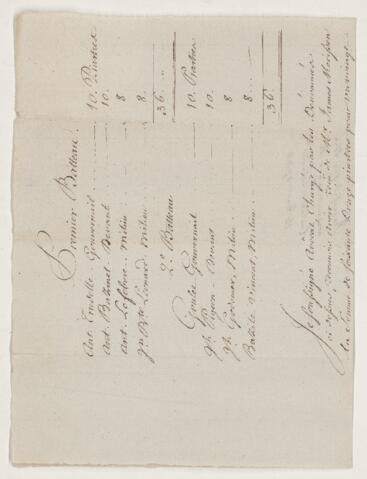 Premier Batteau.
Ant. Trudelle - Gouvernail .. 10. Piastres
Ant. Bazinet - Devant 10.
Ant. Lefebvre - Milieu 8
Jn Bte Leonard, Milieu 8.
36.
2e. Batteau
Goulet Gouvernail 10. Piastres
Jh. Pigeon - Devant 10.
Jh. Milieu 8
Bazile Vincent, Milieu. 8
36.
Je Soussigné Avocat Chargé par les Dénommés
ci dessus reconnois avoir reçu de Mr. James Morison
la Somme de Soixante Douze piastres pour